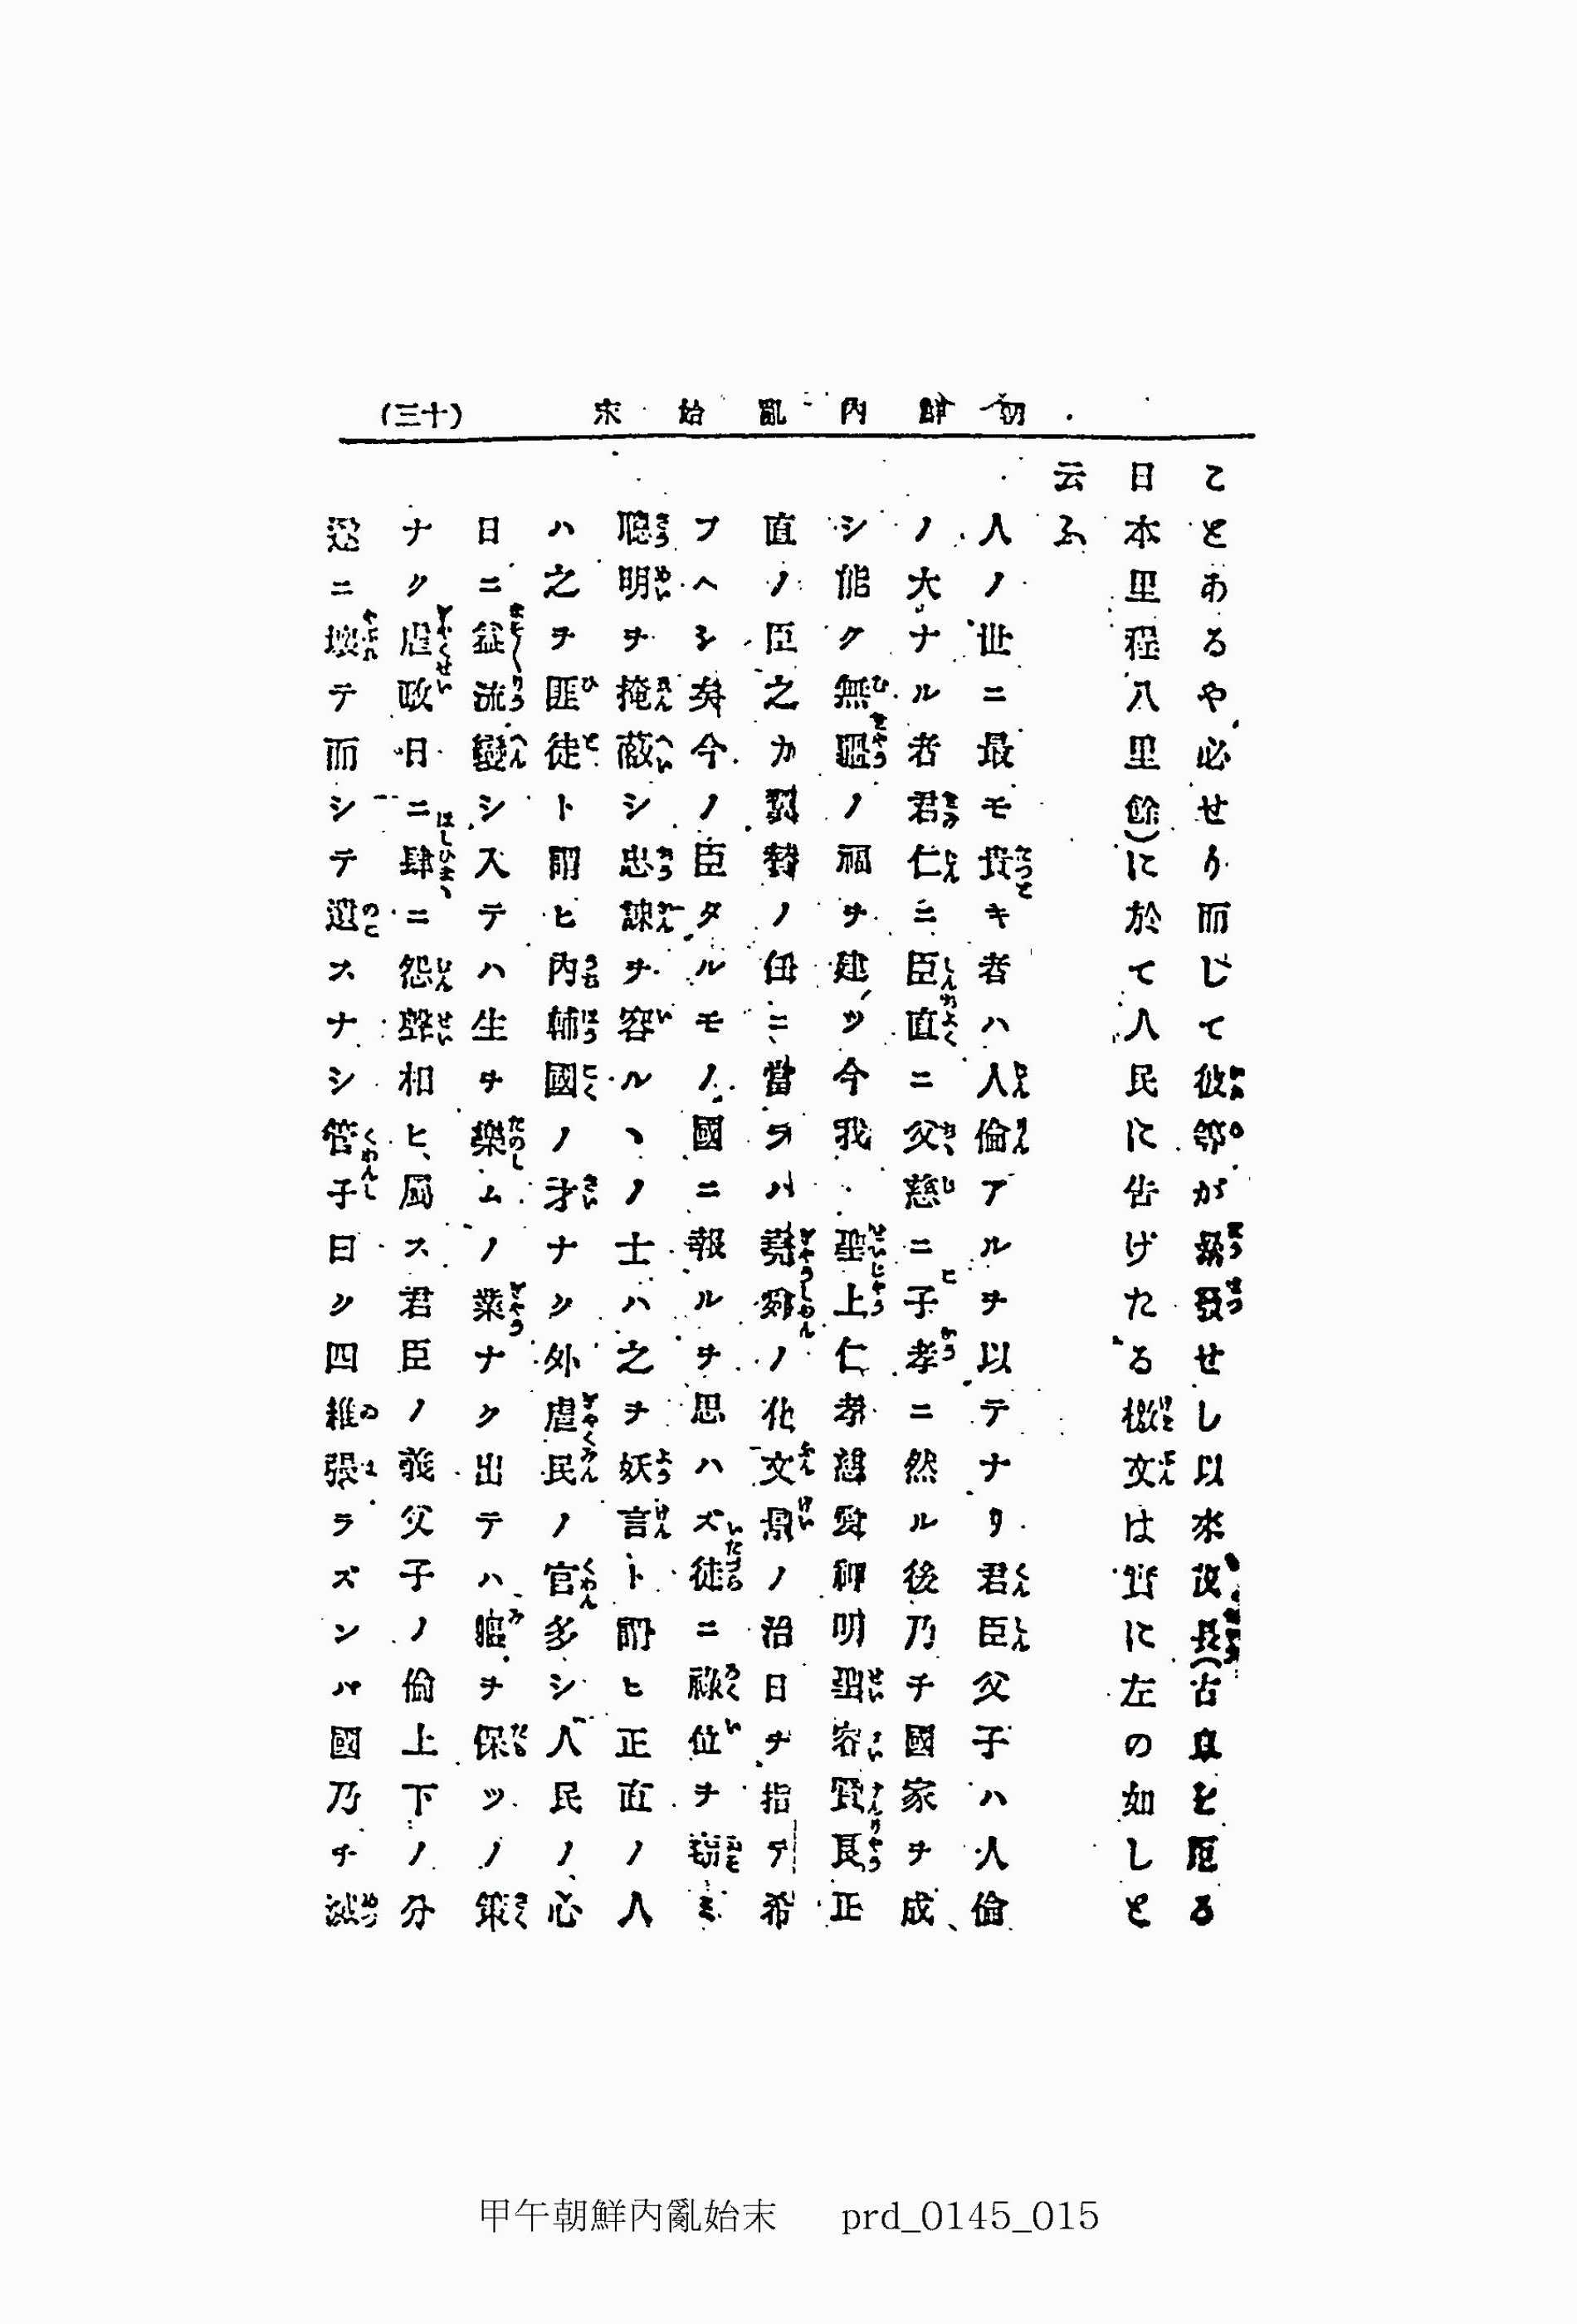 朝鮮內亂始末 (三十)
ことあるや必せり而じて彼等が暴發せし以來茂長(古阜を距る
日本里程八里餘)に於て人民に告げたる檄文は實に左の如しと
云ふ
人ノ世ニ最モ貴キ者ハ人倫アルヲ以テナリ君臣父子ハ人倫
ノ大ナル者君仁ニ臣直ニ父慈ニ子孝ニ然ル後乃チ國家ヲ成
シ能ク無彊ノ福ヲ建ツ今我聖上仁孝慈愛神明聖容賢良正
直ノ臣之カ翼賛ノ任ニ當ラハ堯舜ノ化文景ノ治日ヲ指テ希
フヘシ矣今ノ臣タルモノ國ニ報ルヲ思ハズ徒ニ祿位ヲ竊ミ
聰明ヲ掩蔽シ忠諫ヲ容ルヽノ士ハ之ヲ妖言ト謂ヒ正直ノ人
ハ之ヲ匪徒ト謂ヒ內輔國ノ才ナク外虐民ノ官多シ人民ノ心
日ニ益流變シ入テハ生ヲ樂ムノ業ナク出テハ軀ヲ保ツノ策
ナク虐政日ニ肆ニ怨聲相ヒ屬ス君臣ノ義父子ノ倫上下ノ分
ニ壞テ而シテ遺スナシ管子曰ク四維張ラズンバ國乃チ滅
甲午朝鮮內亂始末 prd_0145_015